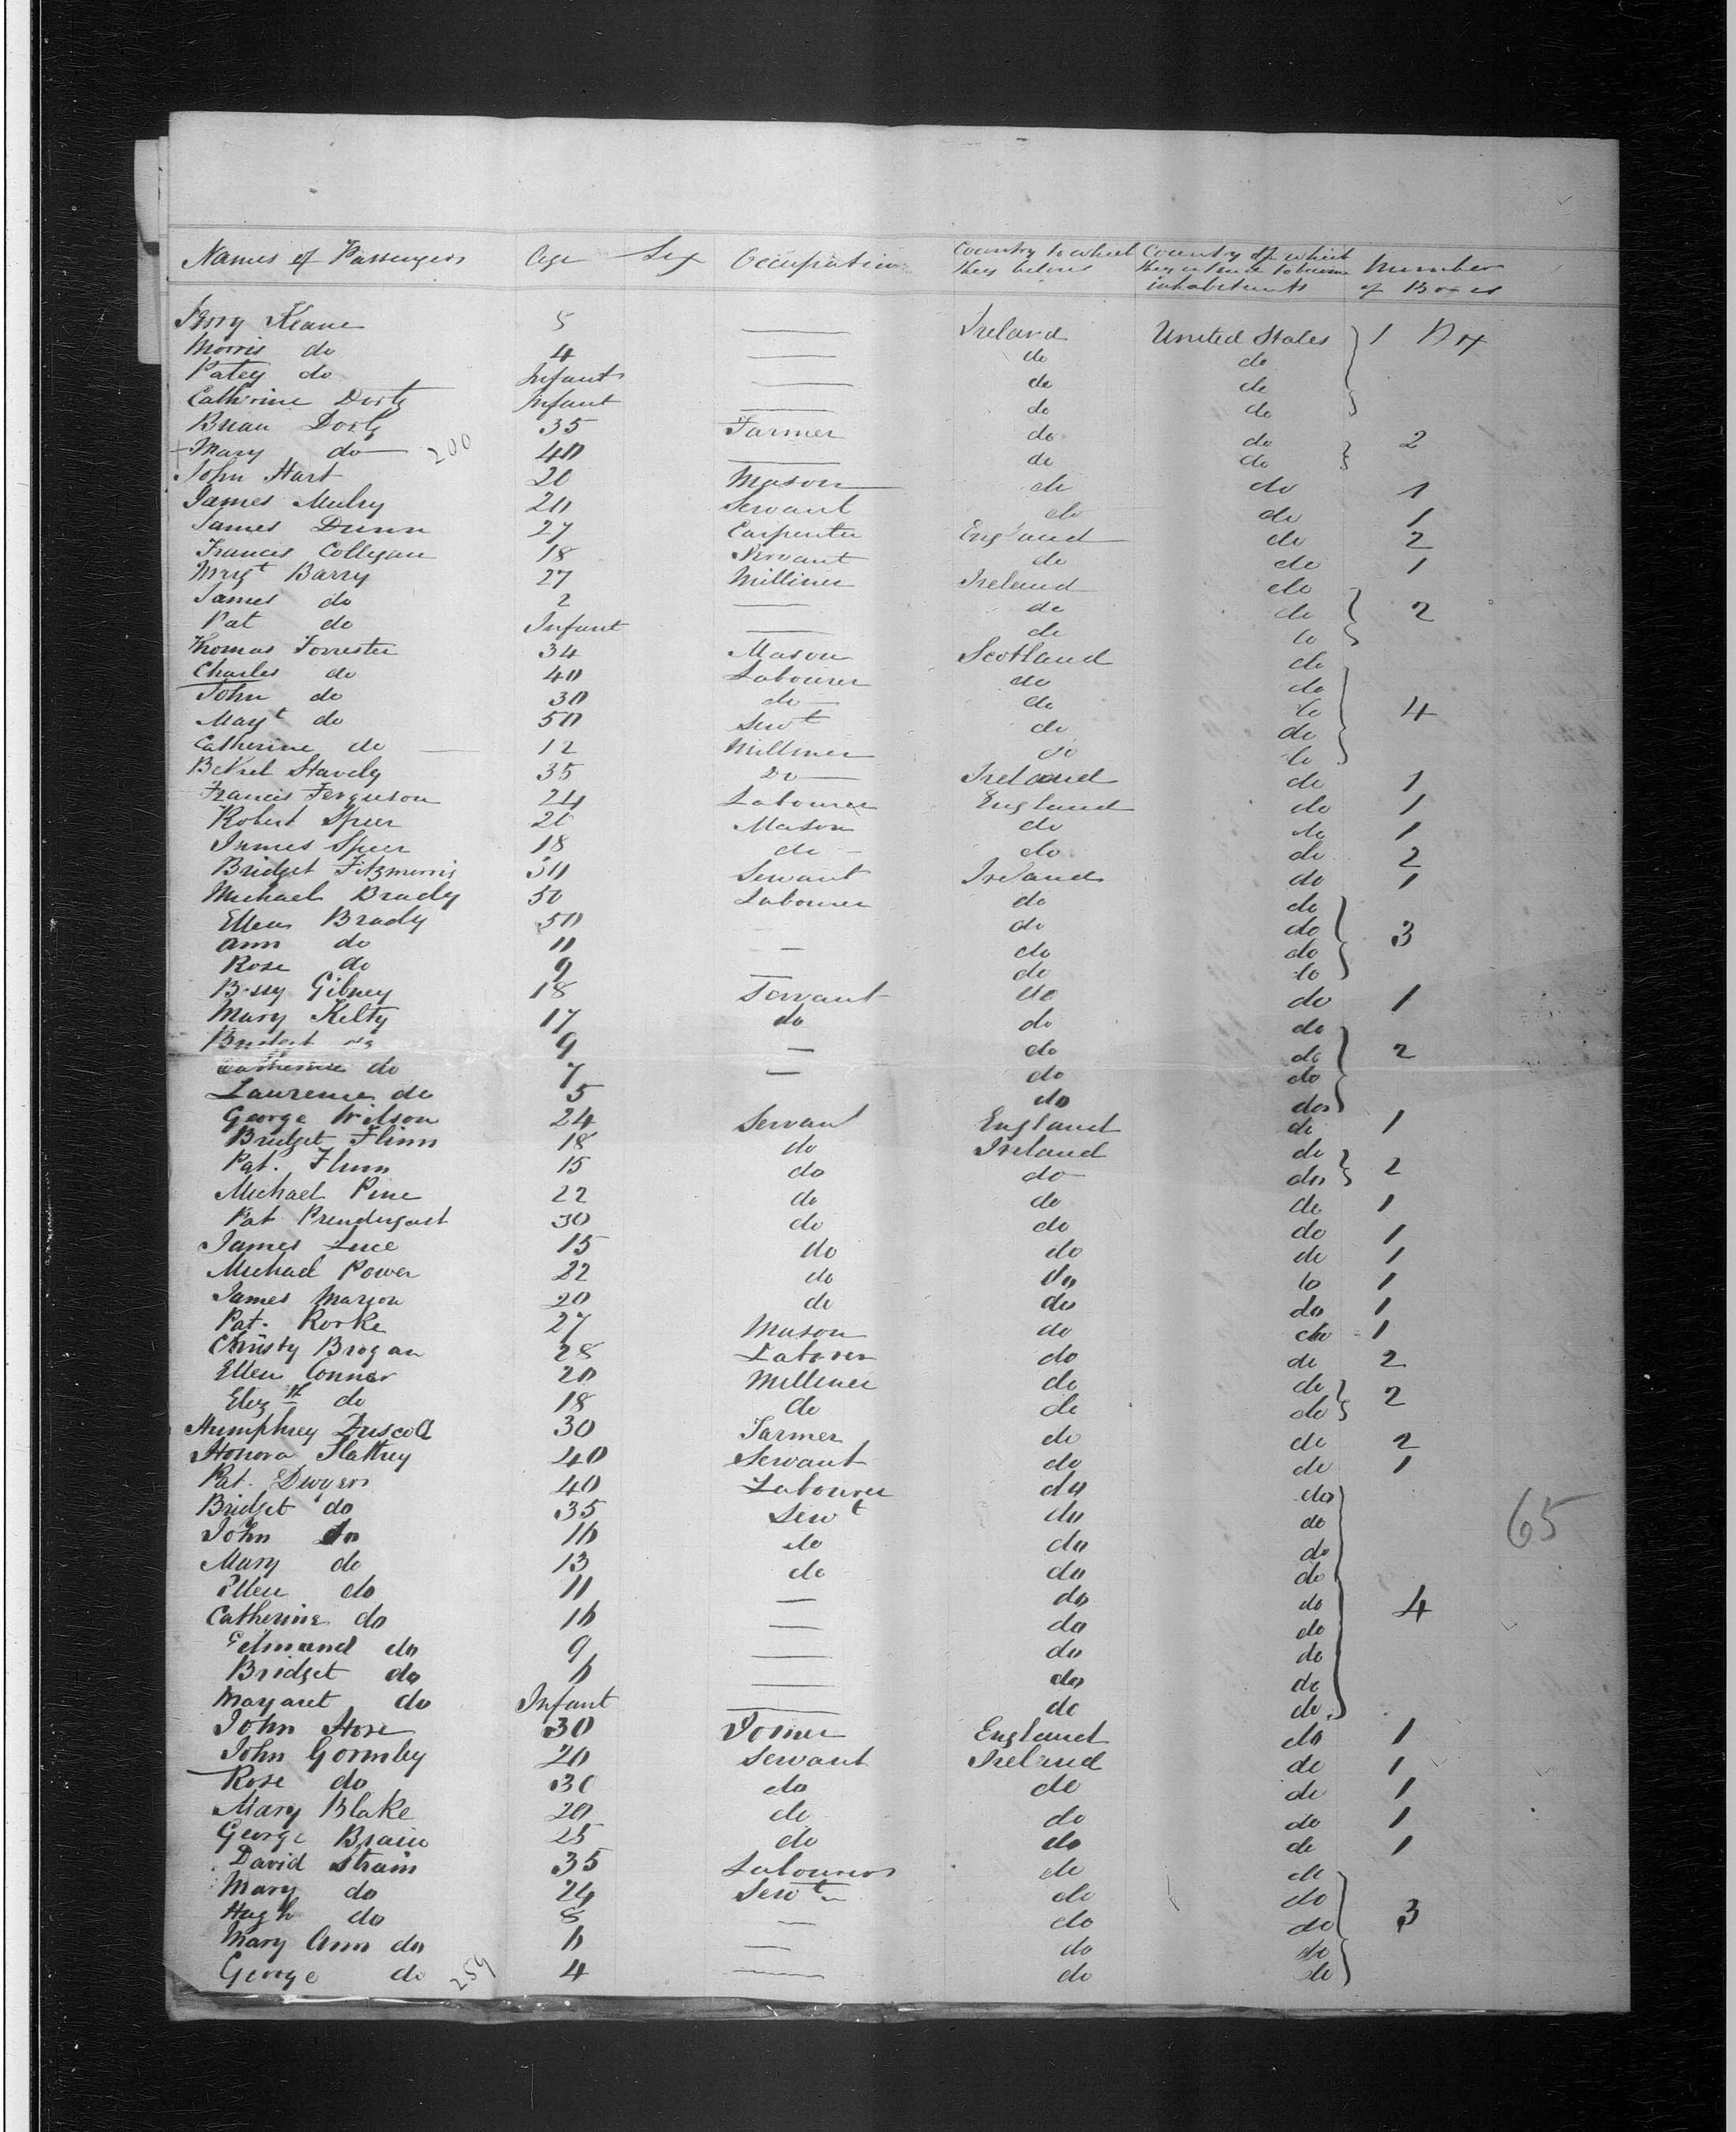 Names of Passengers Age Sex Occupation Country to which they belong Country of which they intend to become inhabitants Number of Boxes
Keane 5 — Ireland United States 1 Box
Morris do 4 — do do
Patey do Infant — do do
Catherine Dorty Infant — do do
Brian Dorty 35 Farmer do do
Mary do 200 40 — do do 2
John Hart 20 Mason do do 1
James Mulry 20 Servant do do 1
James Dunn 27 Carpenter England do 2
Francis Collegan 18 Servant do do 1
Margt Barry 27 Milliner Ireland do
James do 2 — do do 2
Pat do Infant — do do
Thomas Forrester 34 Mason Scotland do
Charles do 40 Labourer do do
John do 30 do do do 4
Magt do 50 Sert do do
Catherine do 12 Milliner do do
Stavely 35 Do Ireland do 1
Francis Ferguson 24 Labourer England do 1
Robert Speer 20 Mason do do 1
James Speer 18 do do do 2
Bridget Fitzmorris 30 Servant Ireland do 1
Michael Brady 50 Labourer do do
Ellen Brady 50 do do 3
Ann do 11 — do do
Rose do 9 — do do
Bessy Gibney 18 Servant do do 1
Mary Kelty 17 do do do
Bridget do 9 — do do 2
Catherine do 7 — do do
Laurence do 5 do do
George Wilson 24 Servant England do 1
Bridget Flinn 18 do Ireland do
Pat. Flinn 15 do do do 2
Michael Pine 22 do do do 1
Pat Prendergast 30 do do do 1
James Luce 15 do do do 1
Michael Power 22 do do do 1
James Marion 20 do do do 1
Pat. Rorke 27 Mason do do 1
Christy Brogan 28 Laborer do do 2
Ellen Connor 20 Milliner do do
Elizth do 18 do do do 2
Humphrey Driscoll 30 Farmer do do 2
Honora Flattrey 40 Servant do do 1
Pat. Dwyer 40 Labourer do do
Bridget do 35 Servt do do 65
John do 16 do do do
Mary do 13 do do do
Ellen do 11 — do do 4
Catherine do 16 — do do
Edmund do 9 — do do
Bridget do 6 — do do
Margaret do Infant — do do
John Hore 30 Joiner England do 1
John Gormley 20 Servant Ireland do 1
Rose do 30 do do do 1
Mary Blake 20 do do do 1
George Brain 25 do do do 1
David Strain 35 Labourer do do
Mary do 24 Servt do do
Hugh do 8 — do do 3
Mary Ann do 6 — do do
George do 259 4 — do do